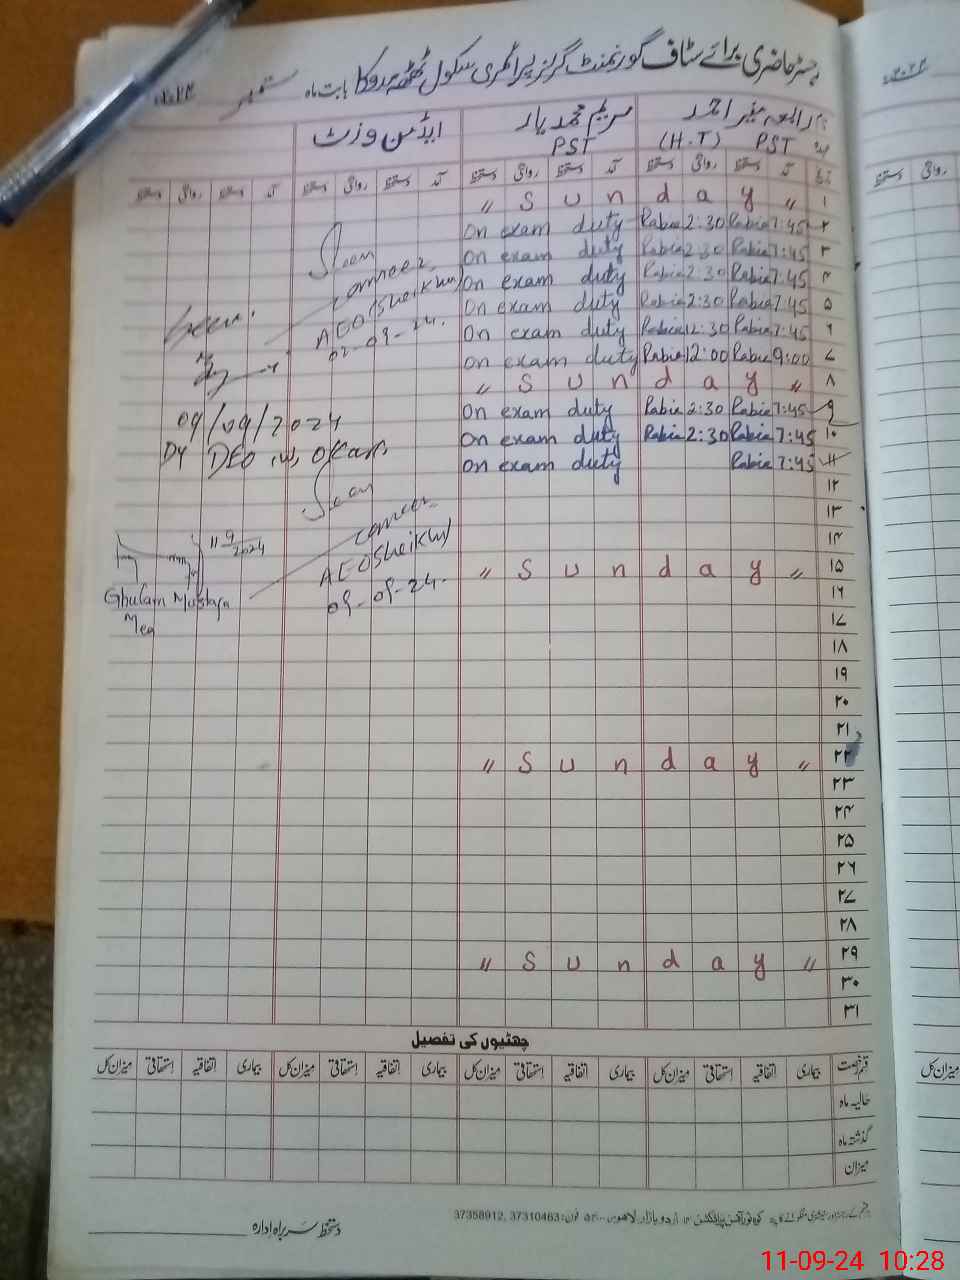 رجسٹر حاضری برائے سٹاف گورنمنٹ گرلز پرائمری سکول ٹھٹھہ بابت ماہ ستمبر ۲۰۲۴
نام رابعہ منیر احمد مریم محمد یار ایڈمن وزٹ
عہدہ PST (H.T) PST
تاریخ آمد دستخط روانگی دستخط آمد دستخط روانگی دستخط آمد دستخط روانگی دستخط آمد دستخط روانگی دستخط
۱ " S u n d a y "
۲ On exam duty Rabia 2:30 Rabia 7:45
۳ On exam duty Rabia 2:30 Rabia 7:45
۴ On exam duty Rabia 2:30 Rabia 7:45
۵ On exam duty Rabia 2:30 Rabia 7:45
۶ On exam duty Rabia 12:30 Rabia 7:45
۷ On exam duty Rabia 12:00 Rabia 9:00
۸ " S u n d a y "
۹ On exam duty Rabia 2:30 Rabia 7:45
۱۰ On exam duty Rabia 2:30 Rabia 7:45
۱۱ On exam duty Rabia 7:45
۱۲
۱۳
۱۴
۱۵ " S u n d a y "
۱۶
۱۷
۱۸
۱۹
۲۰
۲۱
۲۲ " S u n d a y "
۲۳
۲۴
۲۵
۲۶
۲۷
۲۸
۲۹ " S u n d a y "
۳۰
۳۱
AEO (Sheikhu)
02-09-24.
Seen.
09/09/2024
Dy DEO (w) Okara
AEO Sheikhu
09-09-24.
11-9-2024
Ghulam Mustafa
Mea
چھٹیوں کی تفصیل
قسم رخصت بیماری اتفاقیہ استحقاقی میزان کل بیماری اتفاقیہ استحقاقی میزان کل بیماری اتفاقیہ استحقاقی میزان کل بیماری اتفاقیہ استحقاقی میزان کل
حالیہ ماہ
گذشتہ ماہ
میزان
اردو بازار لاہور فون: 37310463, 37358912
دستخط سربراہ ادارہ
۲۰۲۴
دستخط روانگی
میزان کل
11-09-24 10:28